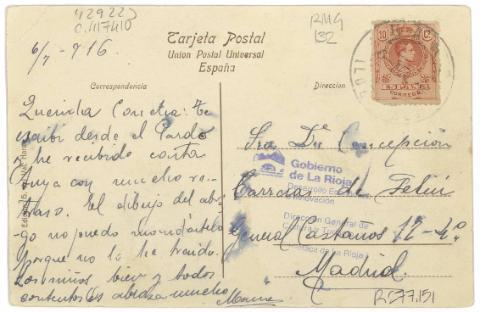 42922
C.417410
RMG
132
6/7 - 916.
Tarjeta Postal
Union Postal Universal
España
10 Cs
ESPAÑA
CORREOS
Correspondencia
Direccion
Querida Concha: te
escribi desde el Pardo
he recibido carta
tuya con mucho re-
traso. El dibujo del abri-
go no puedo mandartelo
porque no lo he traido.
Los niños bien y todos
contentos os abraza mucho
Sra Dª Concepción
Carreras de Feliu
General Castaños 12-4º
Madrid.
Gobierno
de La Rioja
Desarrollo
Innovación
Dirección General de
Cultura y
de La Rioja
R.277.151